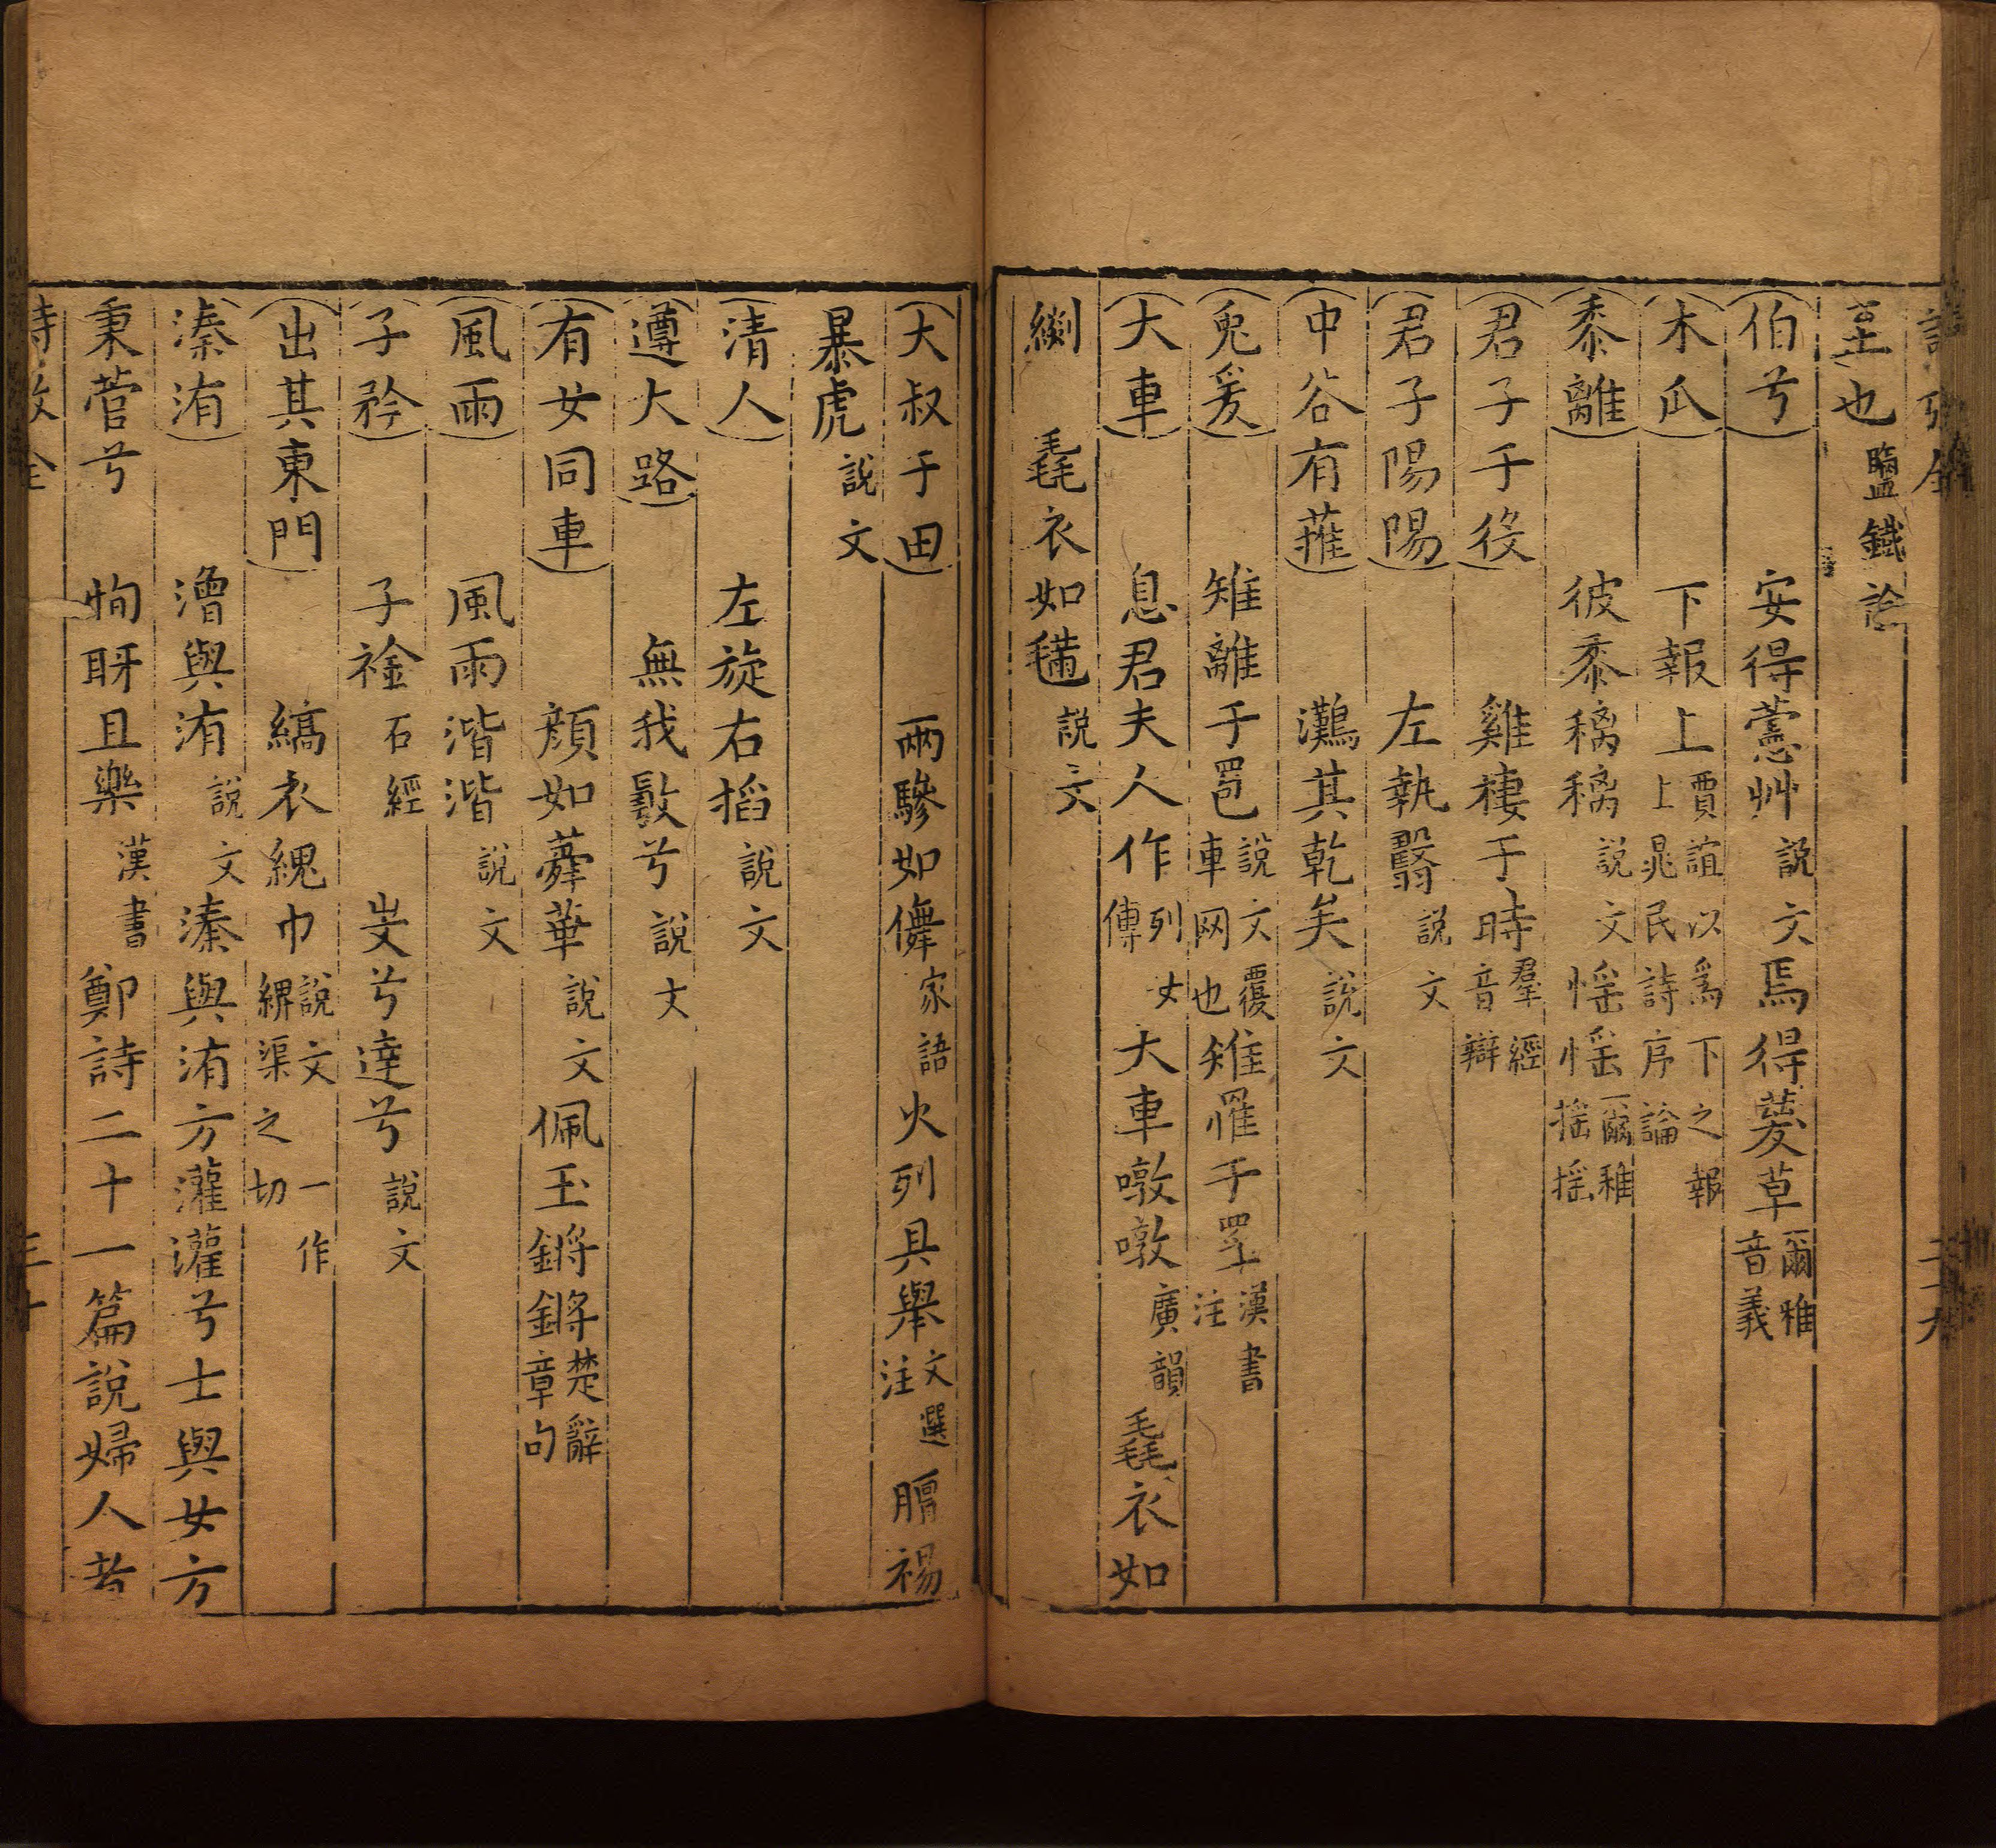 臺也鹽鐵論
伯兮　安得藼艸說文焉得蕿草爾雅音義
木瓜　下報上賈誼以爲下之報上晁民詩序論
黍離　彼黍稿稿說文愮愮爾雅搖搖
君子于役　雞棲于時羣經音辯
君子陽陽　左執翳說文
中谷有蓷　灘其乾矣說文
兎爰　雉離于罦說文覆車网也雉罹于罜漢書注
大車　息君夫人作列女傳大車噋噋廣韻毳衣如
緂　毳衣如𣯩說文
大叔于田　兩驂如儛家語火列具舉文選注膻裼
暴虎說文
清人　左旋右搯說文
遵大路　無我𢾭兮說文
有女同車　顏如蕣華說文佩玉鏘鏘楚辭章句
風雨　風雨湝湝說文
子矜　子裣石經　𡴀兮達兮說文
出其東門　縞衣綥巾說文一作綥渠之切
溱洧　潧與洧說文溱與洧方灌灌兮士與女方
秉菅兮　恂盱且樂漢書鄭詩二十一篇說婦人者